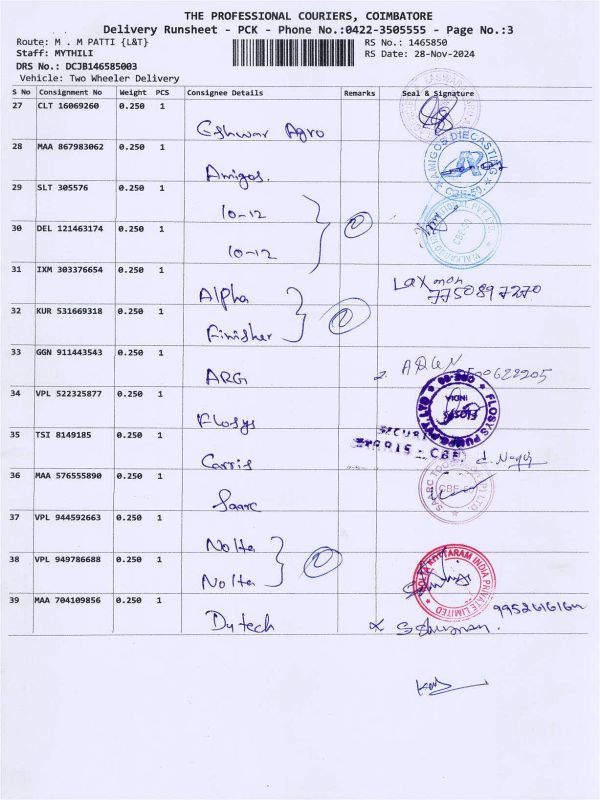 THE PROFESSIONAL COURIERS, COIMBATORE
Delivery Runsheet - PCK - Phone No.:0422-3505555 - Page No.:3
Route: M . M PATTI {L&T} RS No.: 1465850
Staff: MYTHILI RS Date: 28-Nov-2024
DRS No.: DCJB146585003
Vehicle: Two Wheeler Delivery
S No Consignment No Weight PCS Consignee Details Remarks Seal & Signature
27 CLT 16069260 0.250 1
Eshwar Agro
28 MAA 867983062 0.250 1
Amigos. AMIGOS DIECASTING CBE-50.
29 SLT 305576 0.250 1
10-12 2
30 DEL 121463174 0.250 1
10-12
31 IXM 303376654 0.250 1
Alpha 2 Laxman
7750897270
32 KUR 531669318 0.250 1
Finisher
33 GGN 911443543 0.250 1
ARG
34 VPL 522325877 0.250 1
Flosys FLOSYS PUMPS PVT. LTD INDIA
35 TSI 8149185 0.250 1
Carris
36 MAA 576555890 0.250 1
Saarc CBE-50
37 VPL 944592663 0.250 1
Nolta 2
38 VPL 949786688 0.250 1
Nolta INDIA PRIVATE LIMITED
39 MAA 704109856 0.250 1
Dytech